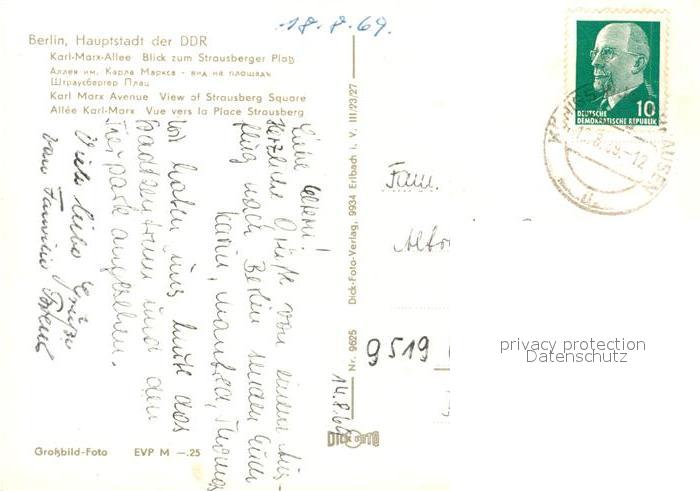 18.8.69.
Berlin, Hauptstadt der DDR
Karl-Marx-Allee Blick zum Strausberger Platz
Аллея им. Карла Маркса - вид на площадь
Штраусбергер Плац
Karl Marx Avenue View of Strausberg Square
Allée Karl-Marx Vue vers la Place Strausberg
Liebe Eltern!
Herzliche Grüße von einem Aus-
flug nach Berlin senden Euch
Karin, Manfred, Thomas
Wir haben uns heute das
Stadtzentrum und den
Tierpark angesehen.
Viele liebe Grüße
von Familie
14.8.69
Großbild-Foto EVP M —.25
Nr. 9625 Dick-Foto-Verlag, 9934 Erlbach i. V. III/23/27
DICK FOTO
10
DEUTSCHE
DEMOKRATISCHE REPUBLIK
Fam.
9519
privacy protection
Datenschutz